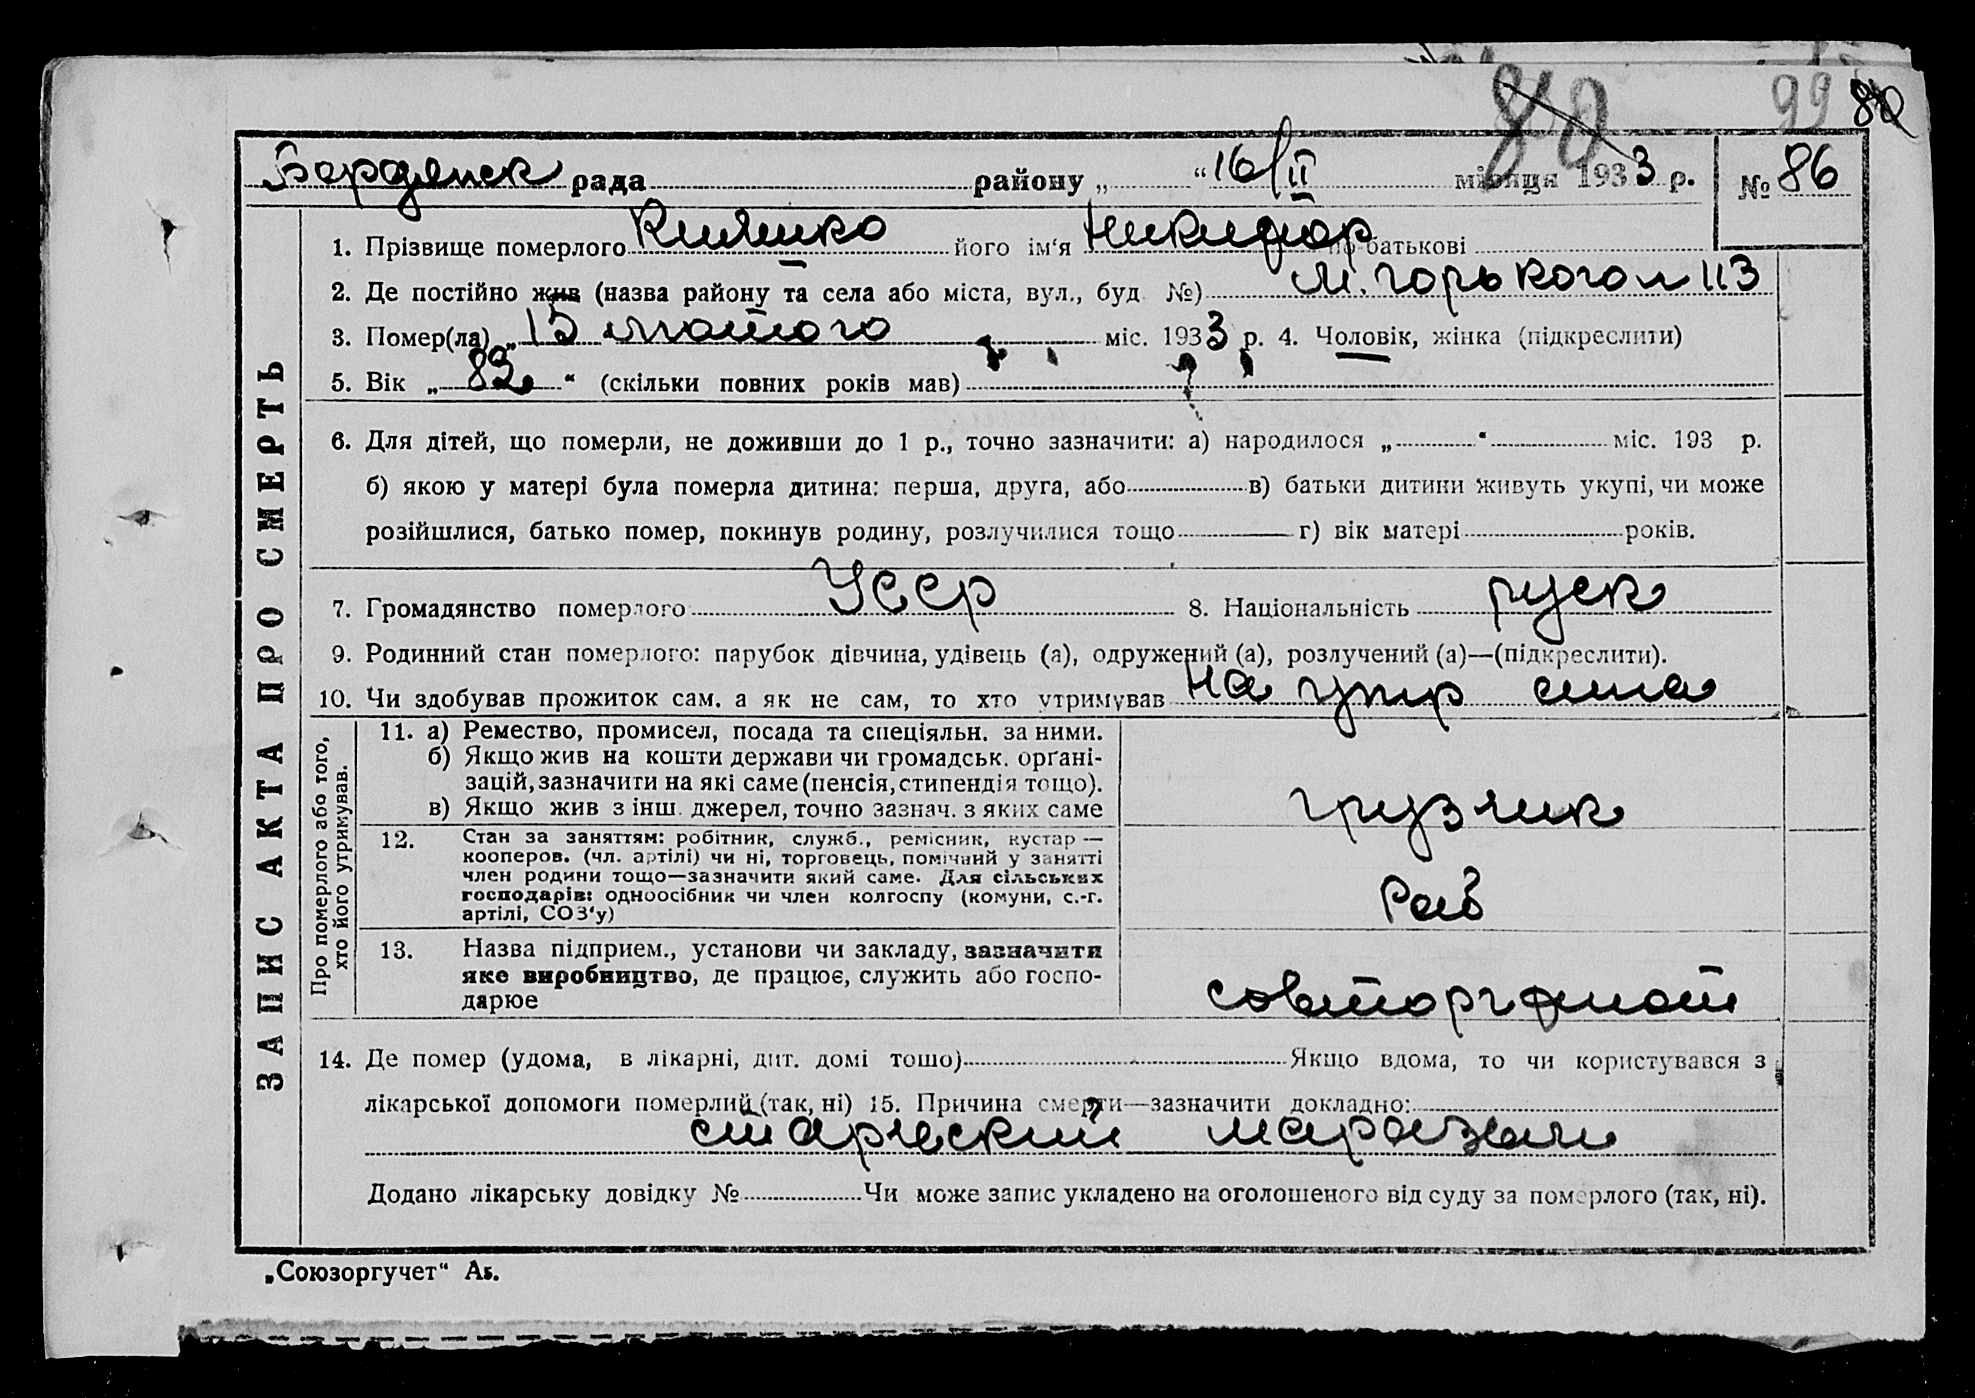 80 99 80
Бердянск рада района „ “ 16/II місяця 1933 р. № 86
ЗАПИС АКТА ПРО СМЕРТЬ
1. Прізвище померлого Кияшко його ім‘я Никифор по-батькові
2. Де постійно жив (назва району та села або міста, вул., буд. №) М. Горького 113
3. Помер(ла) „ 15 лютого міс. 1933 р. 4. Чоловік, жінка (підкреслити)
5. Вік „ 82 “ (скільки повних років мав)
6. Для дітей, що померли, не доживши до 1 р., точно зазначити: а) народилося „ “ міс. 193 р.
б) якою у матері була померла дитина: перша, друга, або в) батьки дитини живуть укупі, чи може
розійшлися, батько помер, покинув родину, розлучилися тощо г) вік матері років.
7. Громадянство померлого Усср 8. Національність руск
9. Родинний стан померлого: парубок дівчина, удівець (а), одружений (а), розлучений (а)—(підкреслити).
10. Чи здобував прожиток сам, а як не сам, то хто утримував на утр сина
Про померлого або того,
хто його утримував.
11. а) Ремество, промисел, посада та спеціяльн. за ними.
б) Якщо жив на кошти держави чи громадськ. орґані-
зацій, зазначити на які саме (пенсія, стипендія тощо).
в) Якщо жив з інш. джерел, точно зазнач. з яких саме
грузчик
12. Стан за заняттям: робітник, служб., ремісник, кустар —
кооперов. (чл. артілі) чи ні, торговець, помічний у занятті
член родини тощо—зазначити який саме. Для сільських
господарів: одноосібник чи член колгоспу (комуни, с.-г.
артілі, СОЗ‘у)
Раб
13. Назва підприєм., установи чи закладу, зазначити
яке виробництво, де працює, служить або госпо-
дарює
совторгфлот
14. Де помер (удома, в лікарні, дит. домі тощо) Якщо вдома, то чи користувався з
лікарської допомоги померлий (так, ні) 15. Причина смерти—зазначити докладно:
старческий маразм
Додано лікарську довідку № Чи може запис укладено на оголошеного від суду за померлого (так, ні).
„Союзоргучет“ Аз.